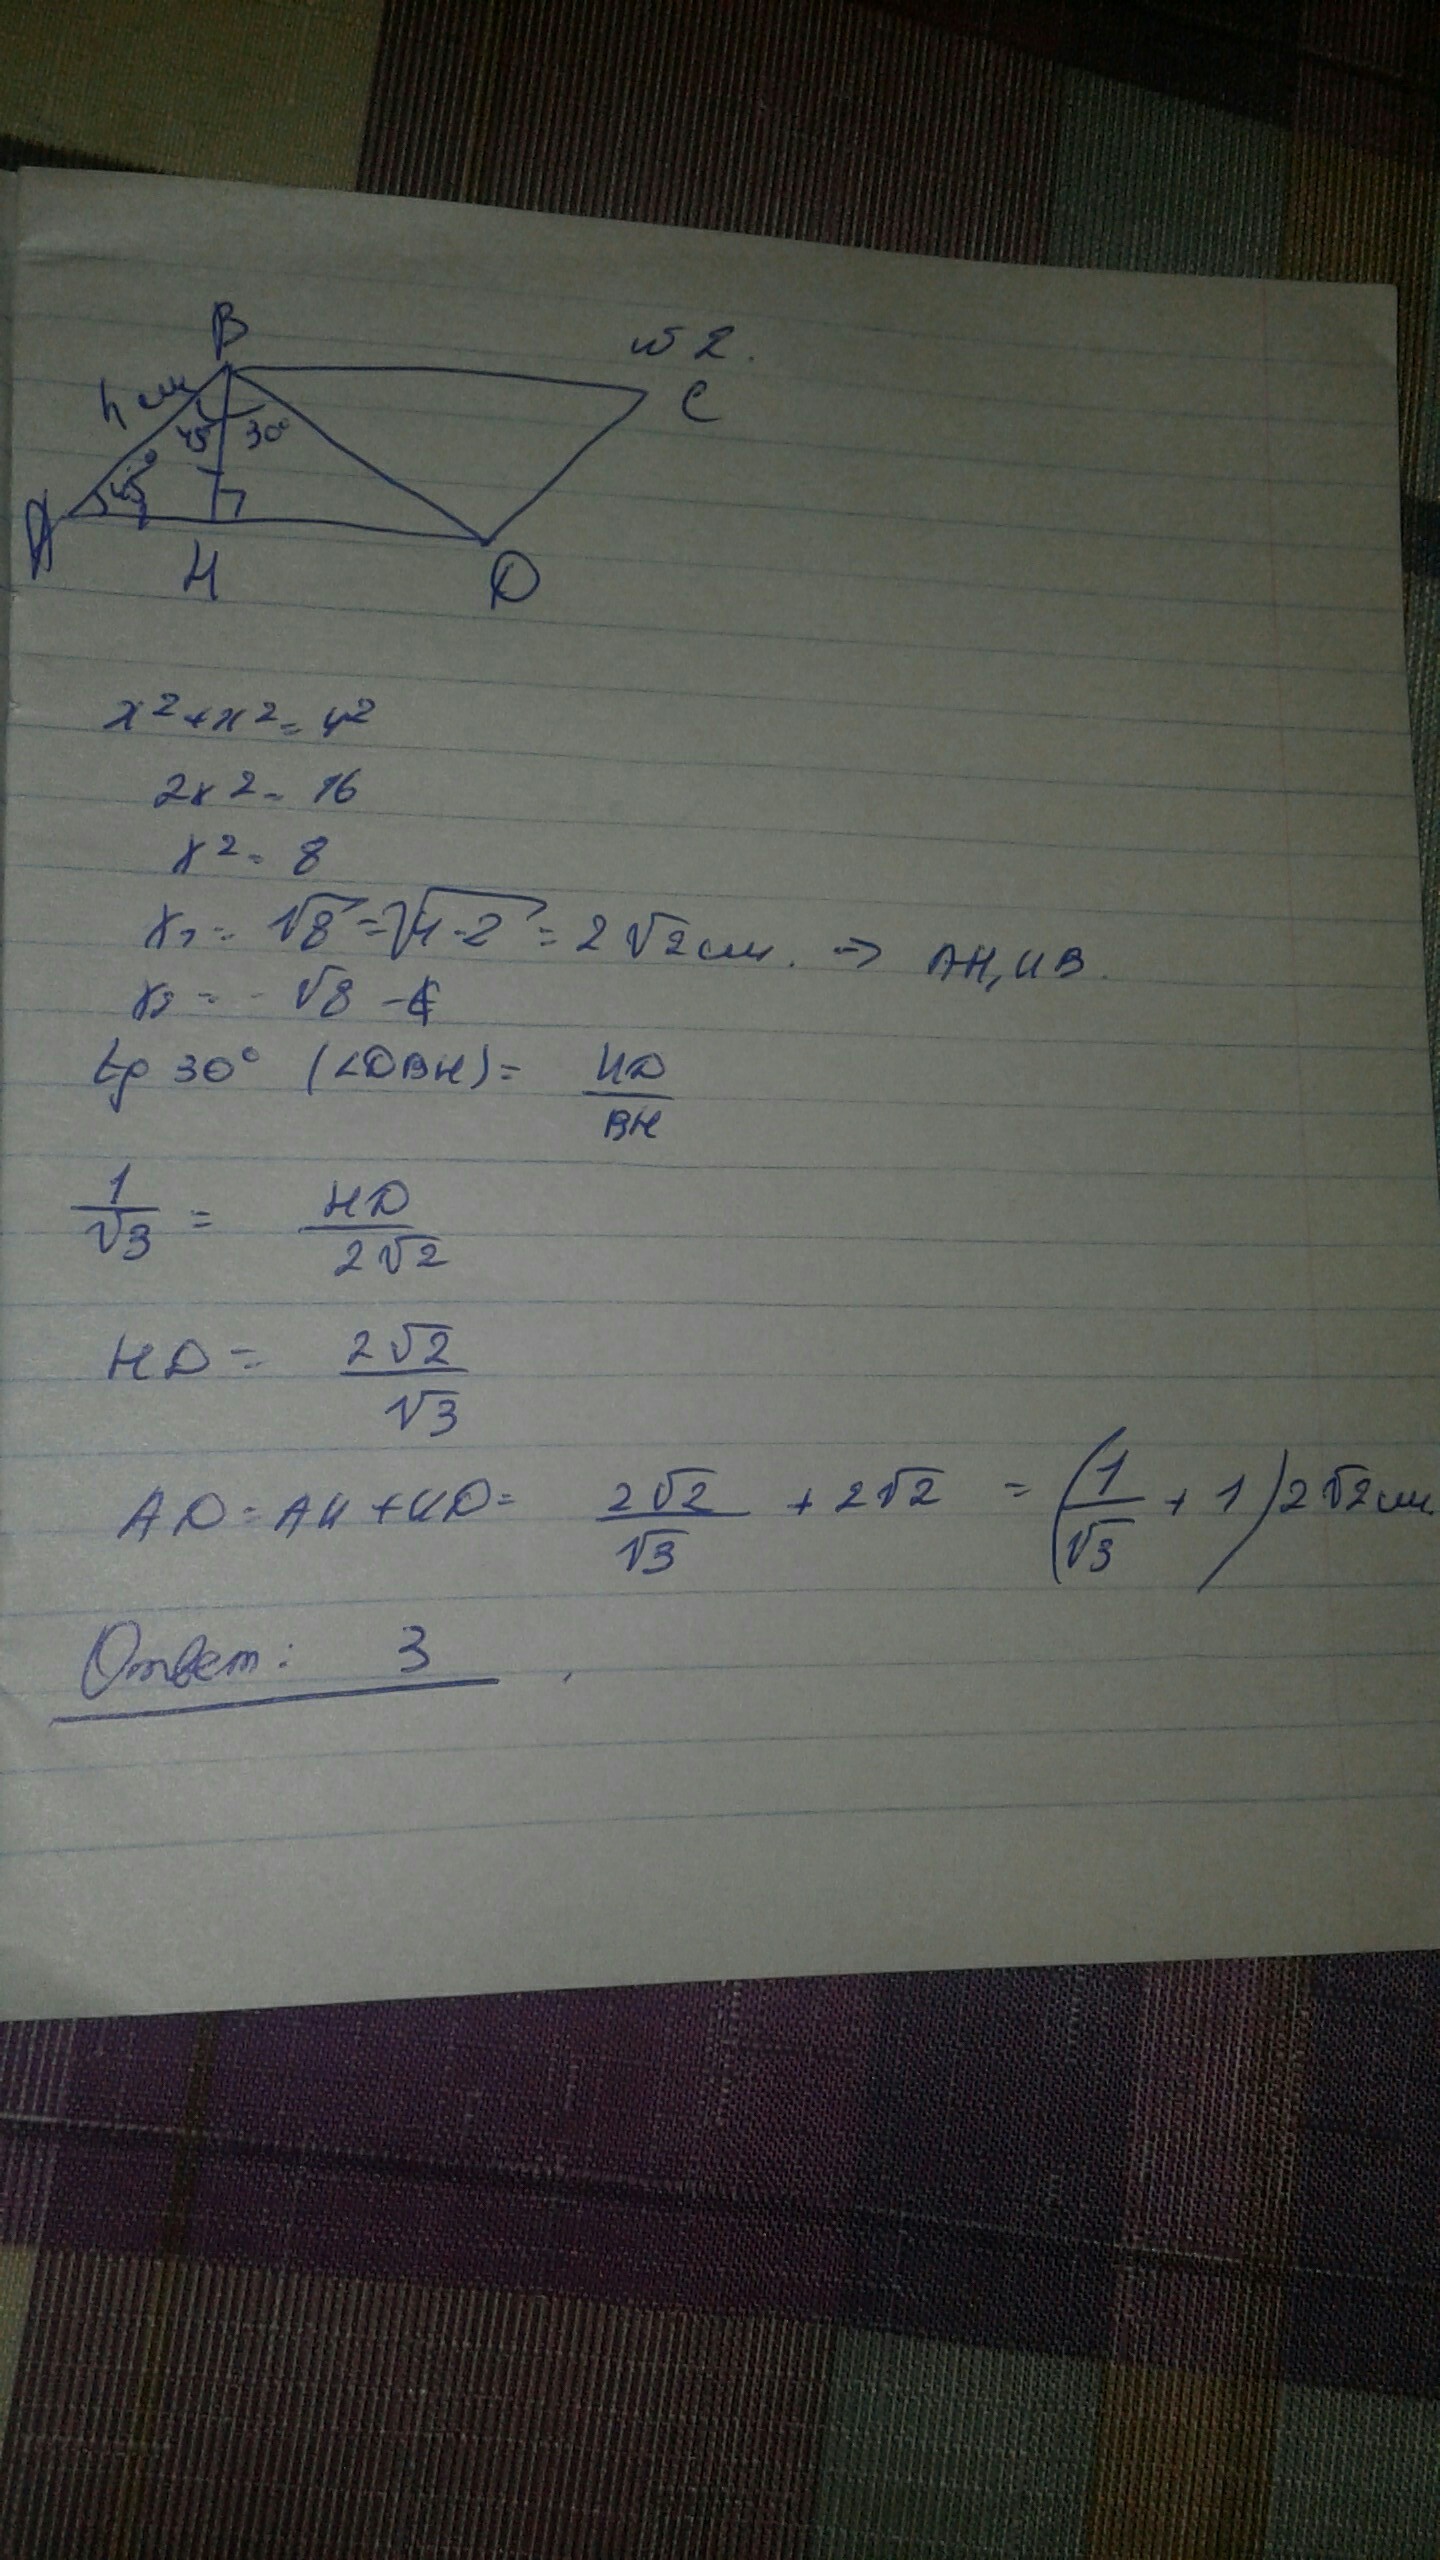 №2.
B
C
4 см
45° 30°
45°
A
H
D
x² + x² = 4²
2x² = 16
x² = 8
x₁ = √8 = √4·2 = 2√2 см. => AH, HB.
x₂ = -√8 -
tg 30° (∠DBH) = HD/BH
1/√3 = HD/2√2
HD = 2√2/√3
AD = AH + HD = 2√2/√3 + 2√2 = (1/√3 + 1) 2√2 см
Ответ: 3